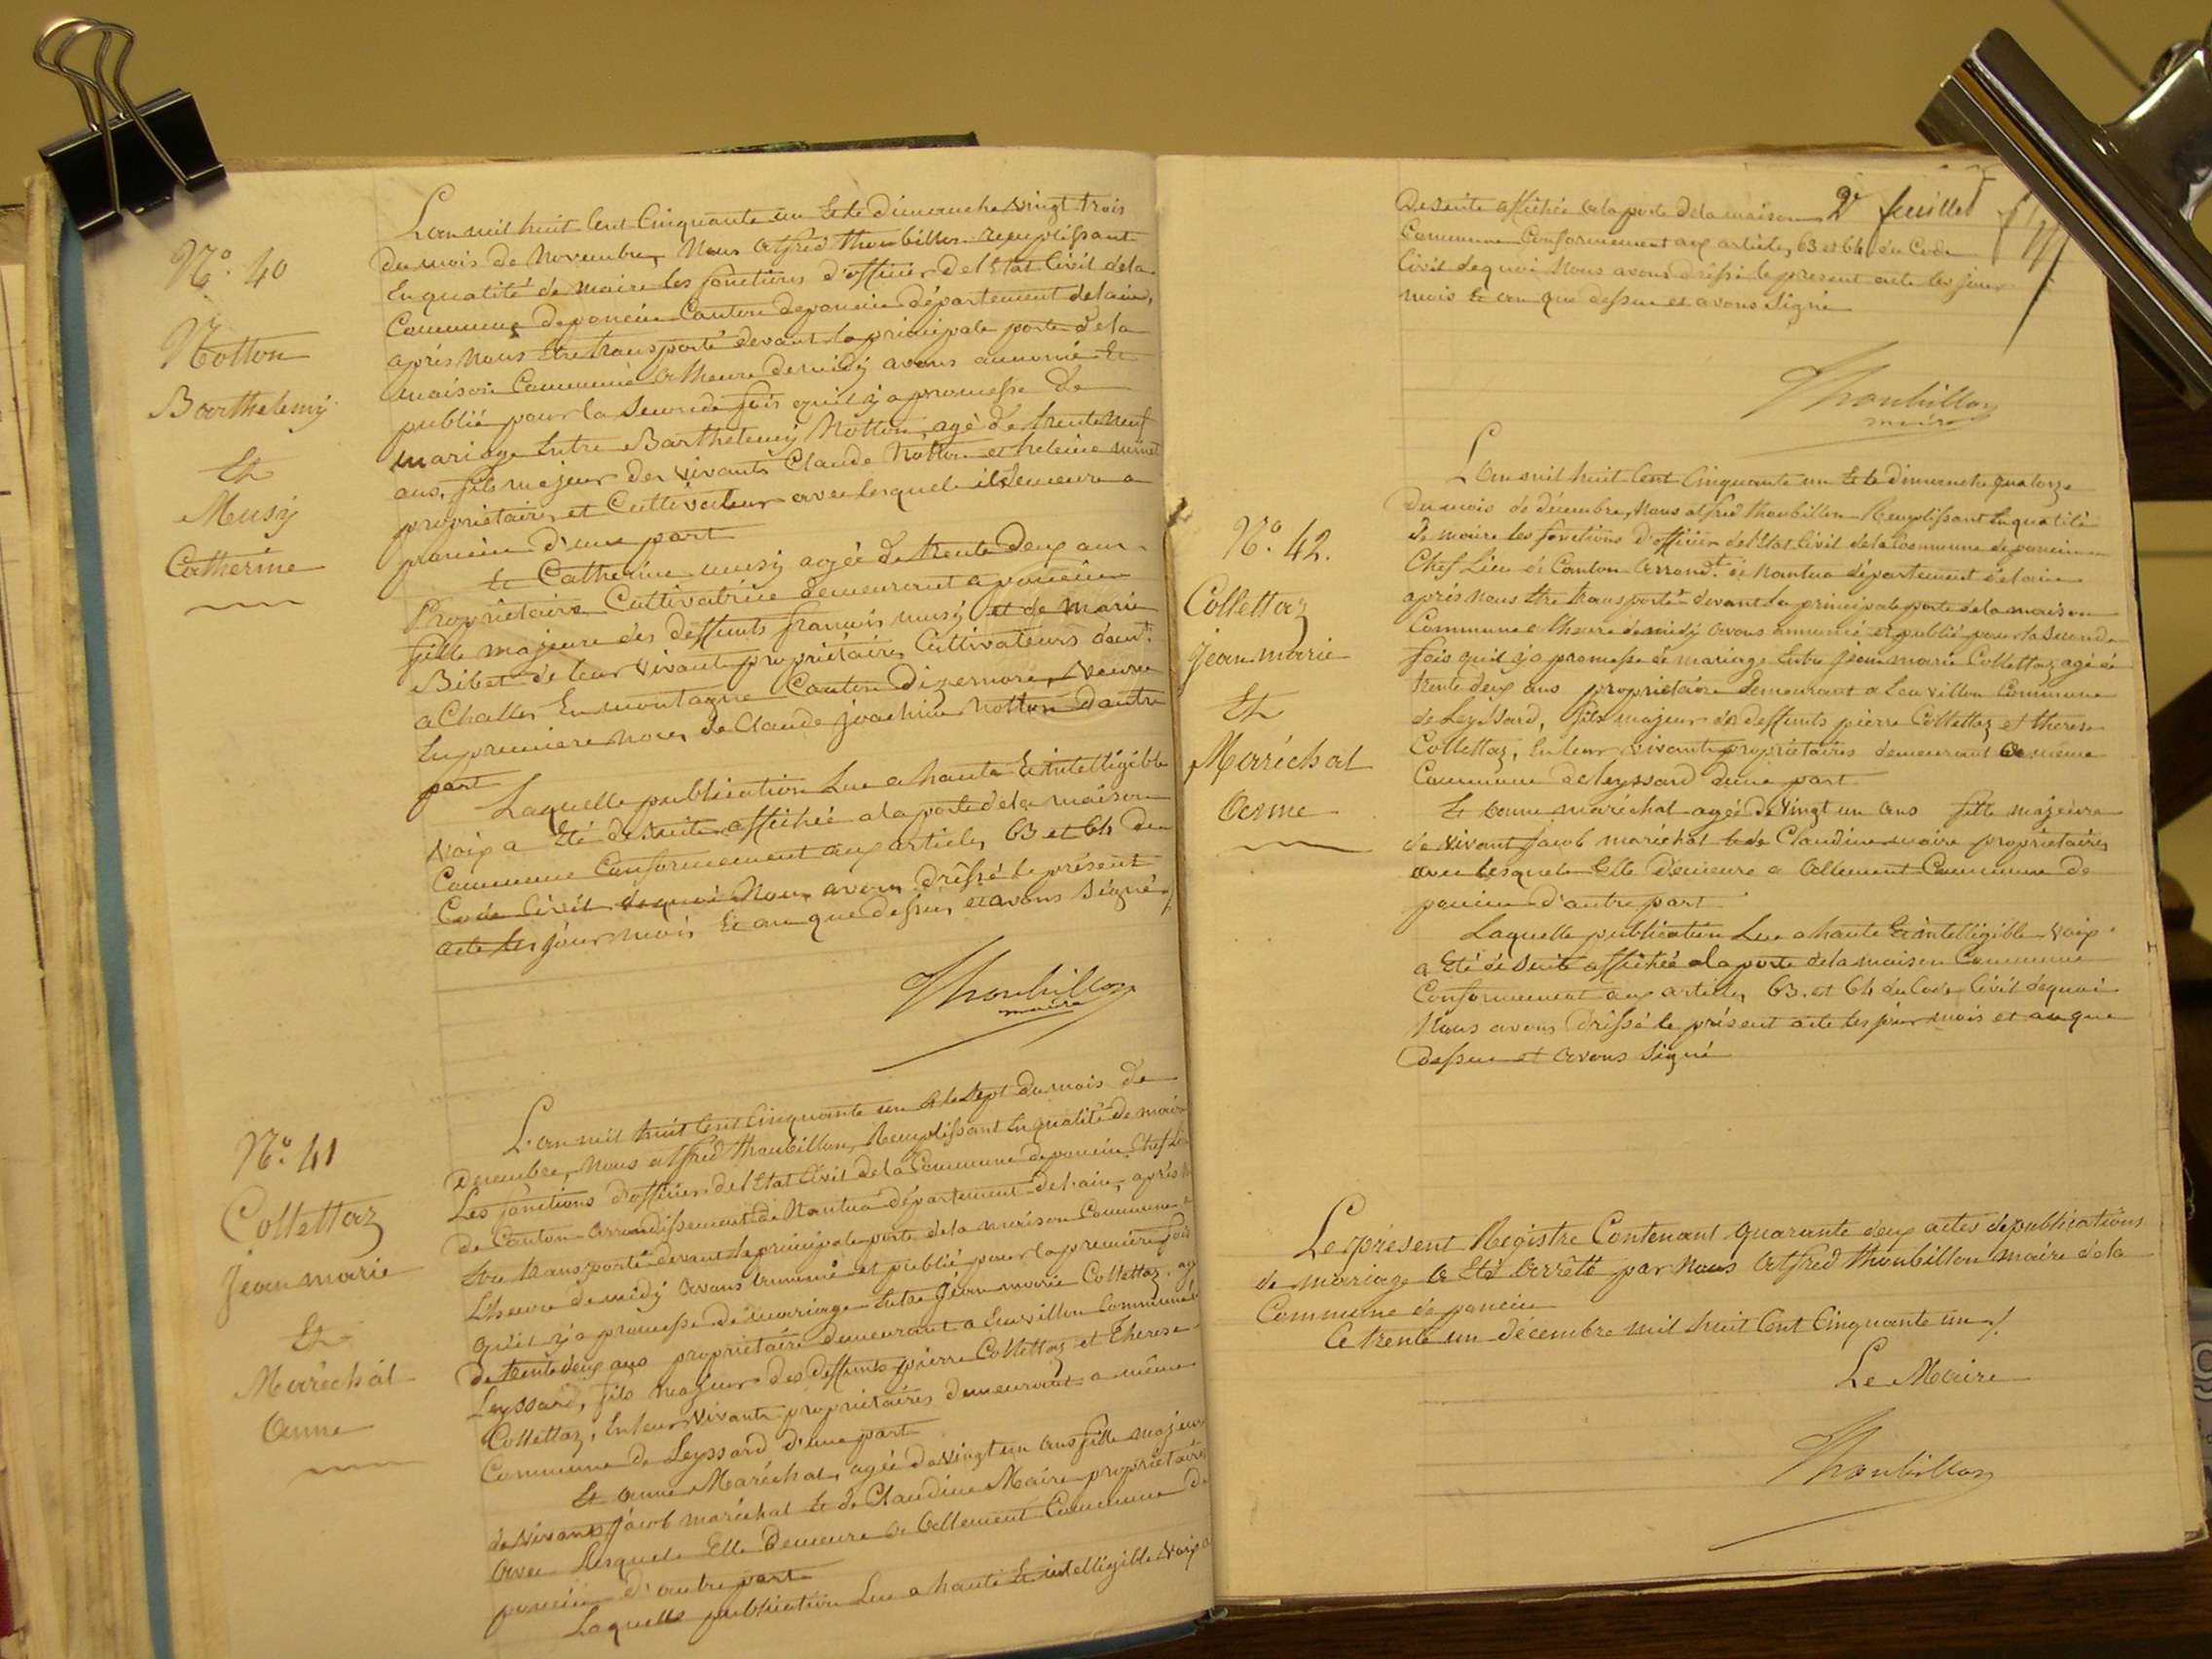 N.° 40
Notton
Barthelemy
Et
Musy
Catherine
L'an mil huit Cent Cinquante un Et le dimanche vingt trois
du mois de Novembre, Nous alfred thoubillon remplissant
En qualité de maire les fonctions d'officier de l'Etat Civil de la
Commune de poncin Canton de poncin département de l'ain,
après Nous Etre transporté devant la principale porte de la
maison Commune a l'heure de midy avons annoncé Et
publié pour la Seconde fois qu'il y a promesse de
mariage Entre Barthelemy Notton, agé de trente neuf
ans, fils majeur des vivants Claude Notton et helene
propriétaires et Cultivateurs avec lesquels il demeure a
poncin d'une part
Et Catherine musy agée de trente deux ans
Propriétaire Cultivatrice demeurant a poncin
fille majeure des deffunts francois musy et de marie
Bibet de leur vivant propriétaires Cultivateurs deur.t
a Challes En montagne Canton Dizernore, Veuve
En premiere noces de Claude joachim Notton d'autre
part
Laquelle publication Lue a haute Et intelligible
voix a Eté de Suite affichée a la porte de la maison
Commune Conformement aux articles 63 et 64 du
Code Civil de quoi Nous avons dréssé le présent
acte les jour mois Et an que dessus, et avons Signé
Thoubillon
maire
N.° 41
Collettaz
Jean marie
Et
Maréchal
Anne
L'an mil huit Cent Cinquante un Et le Sept du mois de
Decembre, Nous alfred thoubillon, Remplissant En qualité de maire
Les fonctions d'officier de l'Etat Civil de la Commune de poncin Chef Lieu
de Canton arrondissement de Nantua département de l'ain, après
Etre transporté devant la principale porte de la maison Commune a
L'heure de midy avons annoncé et publié pour la premiere fois
qu'il y a promesse de mariage Entre Jean marie Collettaz, agé
de trente deux ans propriétaire demeurant a Leuvillon Commune de
Leyssard, fils majeur des deffunts pierre Collettaz et Therese
Collettaz, En leur vivant propriétaires demeurant a même
Commune de Leyssard d'une part
Et Anne Maréchal, agée de vingt un ans fille majeure
de vivans Jacob maréchal Et de Claudine Maire propriétaires
avec Lesquels Elle Demeure a Allement Commune de
poncin d'autre part
Laquelle publication Lue a haute Et intelligible voix a
De suite affichée a la porte de la maison 2.e feuillet
Commune Conformement aux articles 63 et 64 du Code
Civil de quoi Nous avons dréssé le present acte les jour
mois Et an que dessus et avons Signé
Thoubillon
maire
N.° 42.
Collettaz
jean marie
Et
Maréchal
Anne
L'an mil huit Cent Cinquante un Et le Dimanche quatorze
du mois de décembre, Nous alfred thoubillon Remplissant En qualité
de maire les fonctions d'officier de l'Etat Civil de la Commune de poncin
Chef Lieu de Canton arrond.t de Nantua département de l'ain
après Nous Etre transporté devant la principale porte de la maison
Commune a l'heure de midy avons annoncé et publié pour la Seconde
fois qu'il y a promesse de mariage Entre Jean marie Collettaz agé de
trente deux ans propriétaire demeurant a Leuvillon Commune
de Leyssard, fils majeur des deffunts pierre Collettaz et therese
Collettaz, En leur vivant propriétaires demeurant a même
Commune de leyssard d'une part
Et anne maréchal agée de Vingt un ans fille majeure
de vivant Jacob maréchal Et de Claudine maire propriétaires
avec lesquels Elle Demeure a Allement Commune de
poncin d'autre part
Laquelle publication Lue a haute Et intelligible voix
a Eté de Suite affichée a la porte de la maison Commune
Conformement aux articles 63. et 64 du Code Civil de quoi
Nous avons dréssé le présent acte les jour mois et an que
dessus et avons Signé
Le présent Registre Contenant quarante deux actes de publications
de mariage a Eté Arrêté par Nous Alfred thoubillon maire de la
Commune de poncin
Ce trente un décembre mil huit Cent Cinquante un /.
Le Maire
Thoubillon